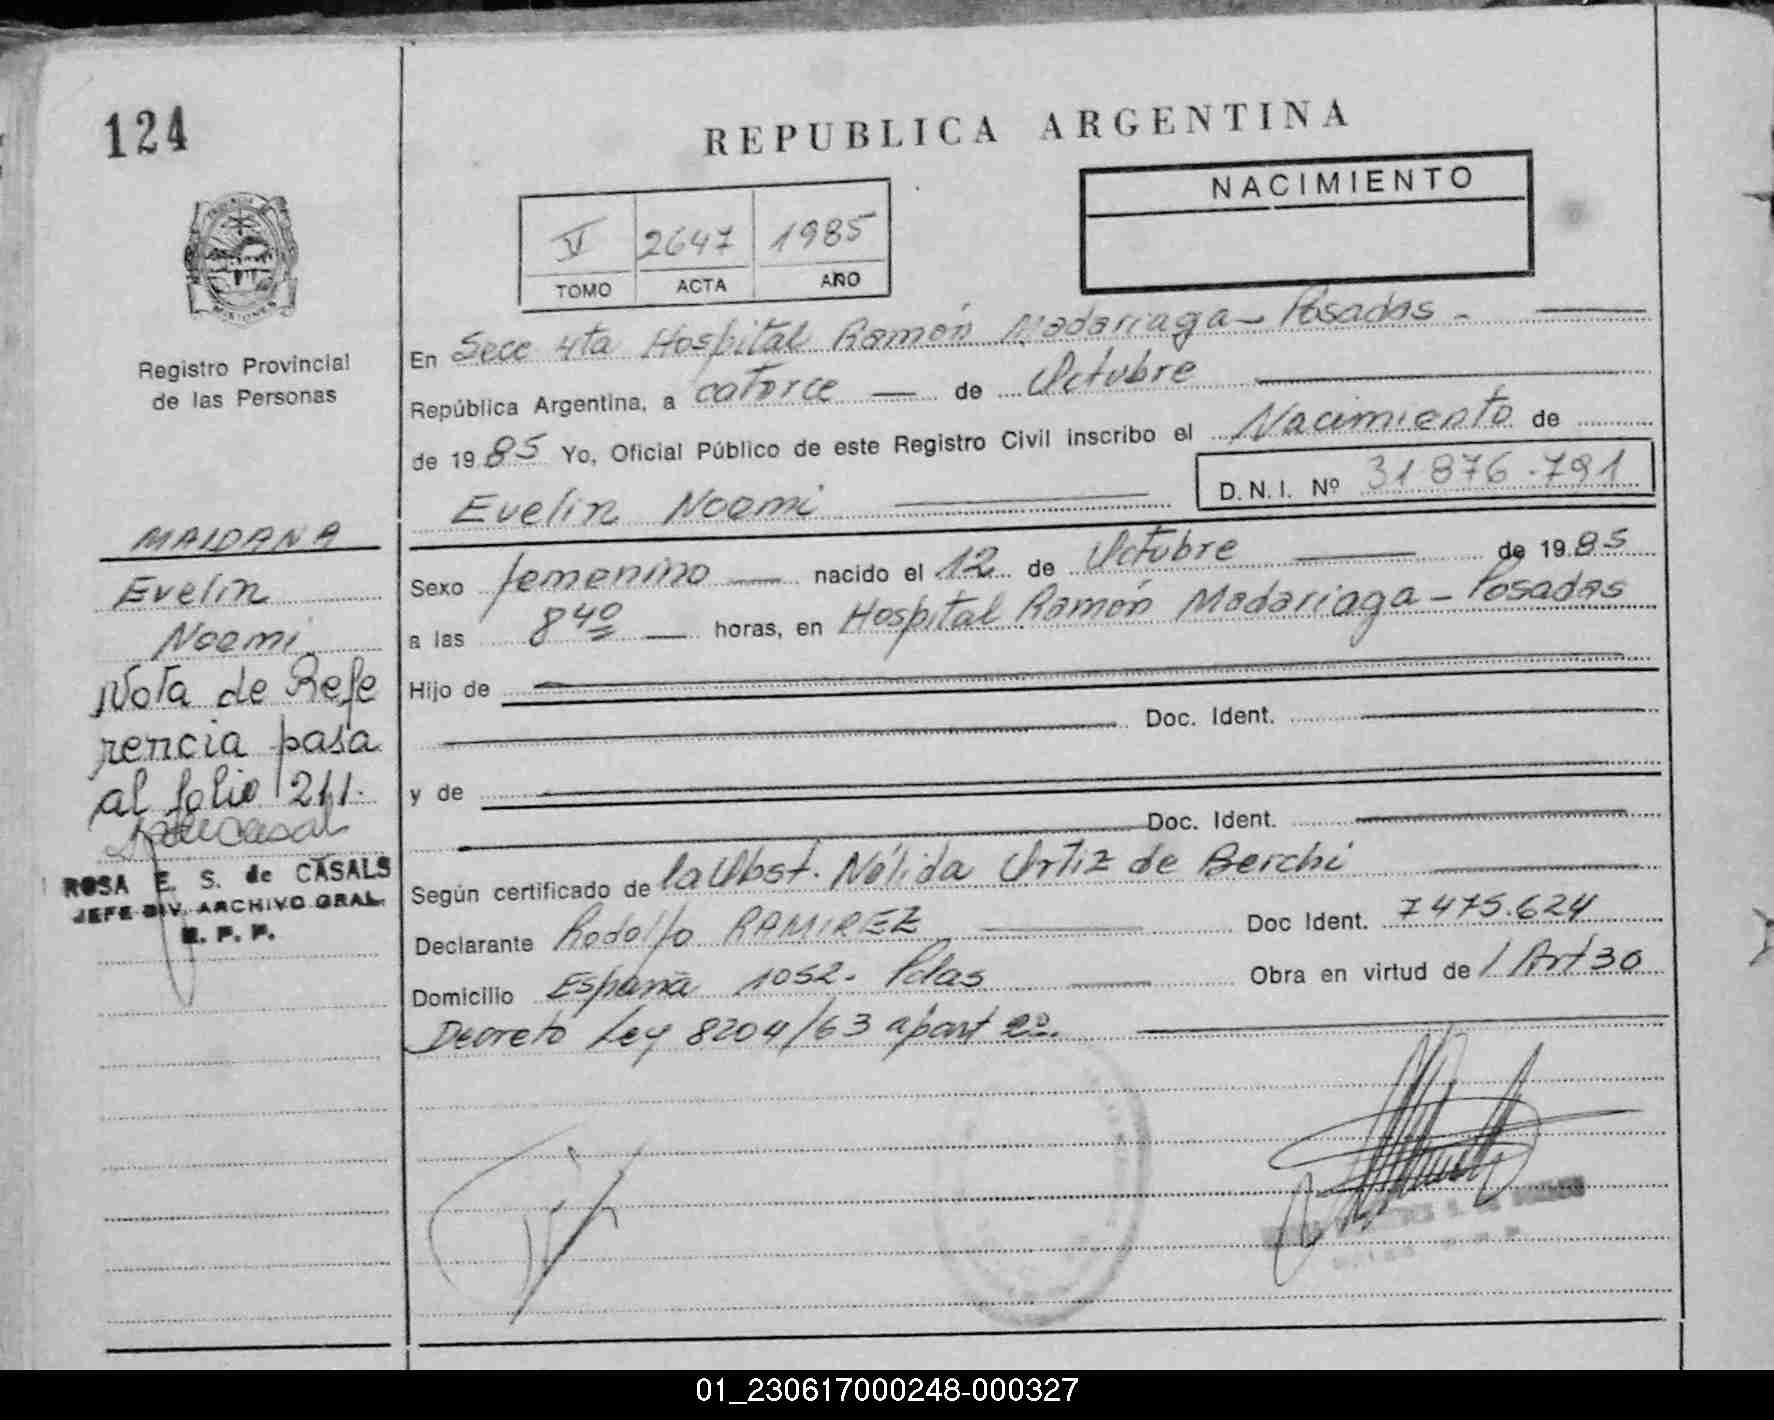 124
REPUBLICA ARGENTINA
NACIMIENTO
V 2647 1985
TOMO ACTA AÑO
MISIONES
Registro Provincial
de las Personas
En Secc 4ta Hospital Ramón Madariaga - Posadas -
República Argentina, a catorce de Octubre
de 1985 Yo, Oficial Público de este Registro Civil inscribo el Nacimiento de
D.N.I. Nº 31 876.791
Evelin Noemi
MALDANA
Evelin
Noemi
Nota de Refe
rencia pasa
al folio 211.
ROSA E. S. de CASALS
JEFE DIV. ARCHIVO GRAL.
R. P. P.
Sexo femenino nacido el 12 de Octubre de 1985
a las 8 40 horas, en Hospital Ramón Madariaga - Posadas
Hijo de
Doc. Ident.
y de
Doc. Ident.
Según certificado de la Obst. Nélida Ortiz de Berchi
Declarante Rodolfo RAMIREZ Doc Ident. 7475.624
Domicilio España 1052. Pdas Obra en virtud de / Art 30
Decreto Ley 8204/63 apart 2º.
01_230617000248-000327